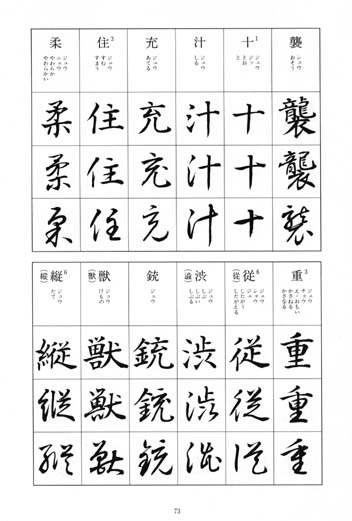 襲 シュウ おそう
十1 ジュウ ジッ とお と
汁 ジュウ しる
充 ジュウ あてる
住3 ジュウ すむ すまう
柔 ジュウ ニュウ やわらか やわらかい
襲 十 汁 充 住 柔
襲 十 汁 充 住 柔
襲 十 汁 充 住 柔
重3 ジュウ チョウ え・おもい かさねる かさなる
従6(從) ジュウ ショウ ジュ したがう したがえる
渋(澁) ジュウ しぶ しぶい しぶる
銃 ジュウ
獣(獸) ジュウ けもの
縦6(縱) ジュウ たて
重 従 渋 銃 獣 縦
重 従 渋 銃 獣 縦
重 従 渋 銃 獣 縦
73